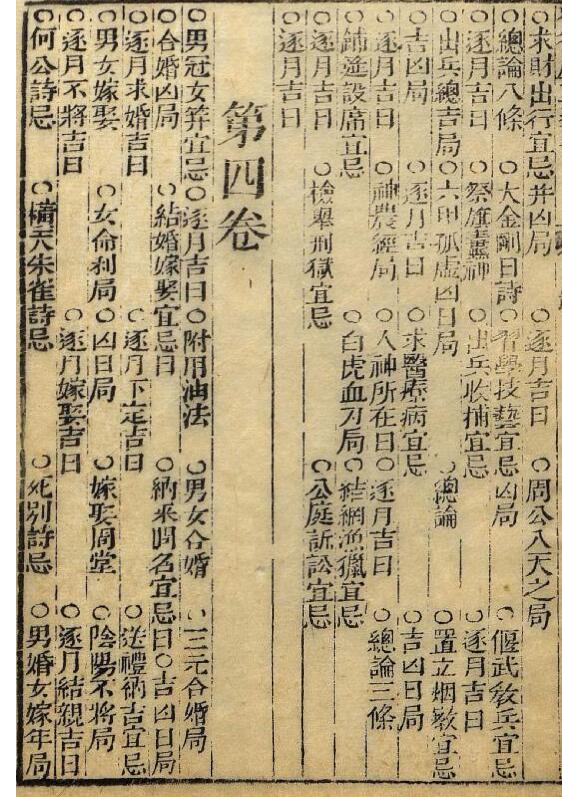 ○求財出行宜忌并凶局 ○逐月吉日 ○周公八天之局
○總論八條 ○大金剛日詩 ○習學技藝宜忌凶局 ○偃武教兵宜忌
○逐月吉日 ○祭旗纛神 ○出兵收捕宜忌 ○逐月吉日
○出兵總吉局 ○六甲孤虛凶日局 ○總論 ○置立烟墩宜忌
○吉凶局 ○逐月吉日 ○求醫療病宜忌 ○吉凶日局
○逐月吉日 ○神農經局 ○人神所在日 ○逐月吉日 ○總論三條
○鋪筵設席宜忌 ○白虎血刃局 ○結網漁獵宜忌
○逐月吉日 ○檢舉刑獄宜忌 ○公庭訴訟宜忌
○逐月吉日
第四卷
○男冠女笄宜忌 ○逐月吉日 ○附用油法 ○男女合婚 ○三元合婚局
○合婚凶局 ○結婚嫁娶宜忌日 ○納采問名宜忌日 ○吉凶日局
○逐月求婚吉日 ○逐月下定吉日 ○送禮納吉宜忌
○男女嫁娶 ○女命利局 ○凶日局 ○嫁娶周堂 ○陰陽不將局
○逐月不將吉日 ○逐月嫁娶吉日 ○逐月結親吉日
○何公詩忌 ○橫天朱雀詩忌 ○死別詩忌 ○男婚女嫁年局